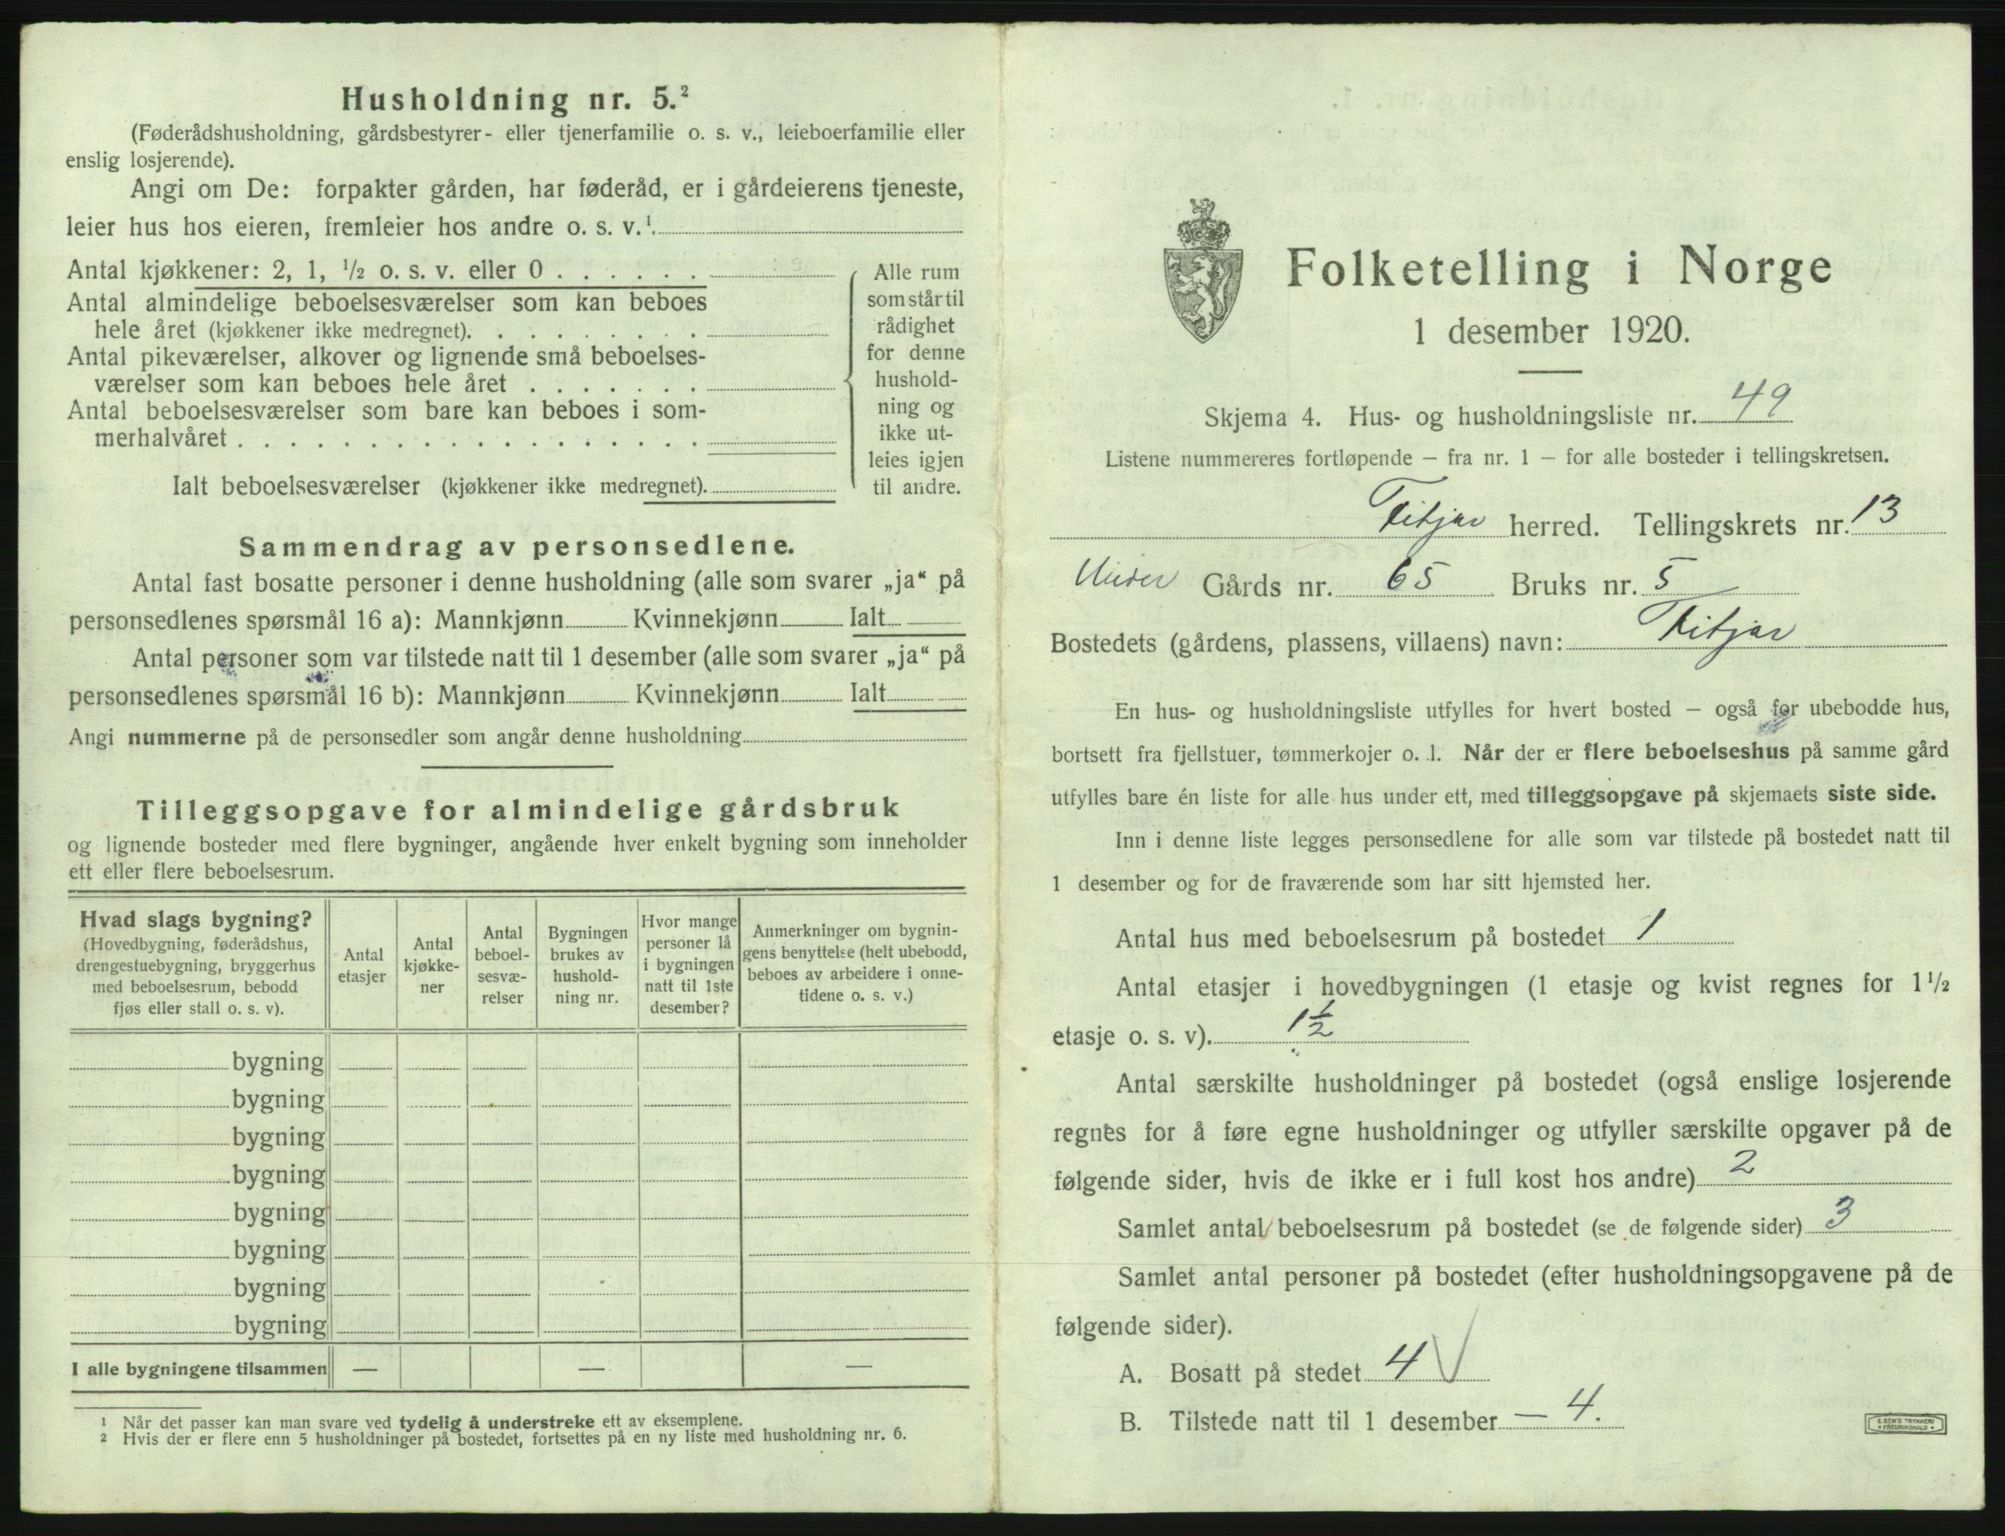 Husholdning nr. 5.²
(Føderådshusholdning, gårdsbestyrer- eller tjenerfamilie o. s. v., leieboerfamilie eller
enslig losjerende).
Angi om De: forpakter gården, har føderåd, er i gårdeierens tjeneste,
leier hus hos eieren, fremleier hos andre o. s. v.¹
Antal kjøkkener: 2, 1, ½ o. s. v. eller 0 . . . . . .
Antal almindelige beboelsesværelser som kan beboes
hele året (kjøkkener ikke medregnet). . . . . . . . .
Antal pikeværelser, alkover og lignende små beboelses-
værelser som kan beboes hele året . . . . . . .
Antal beboelsesværelser som bare kan beboes i som-
merhalvåret . . . . . . . . . . . . . . . . . .
Ialt beboelsesværelser (kjøkkener ikke medregnet).
Alle rum
som står til
rådighet
for denne
hushold-
ning og
ikke ut-
leies igjen
til andre.
Sammendrag av personsedlene.
Antal fast bosatte personer i denne husholdning (alle som svarer „ja“ på
personsedlenes spørsmål 16 a): Mannkjønn Kvinnekjønn Ialt
Antal personer som var tilstede natt til 1 desember (alle som svarer „ja“ på
personsedlenes spørsmål 16 b): Mannkjønn Kvinnekjønn Ialt
Angi nummerne på de personsedler som angår denne husholdning
Tilleggsopgave for almindelige gårdsbruk
og lignende bosteder med flere bygninger, angående hver enkelt bygning som inneholder
ett eller flere beboelsesrum.
Hvad slags bygning?
(Hovedbygning, føderådshus,
drengestuebygning, bryggerhus
med beboelsesrum, bebodd
fjøs eller stall o. s. v).
Antal
etasjer
Antal
kjøkke-
ner
Antal
beboel-
sesvæ-
relser
Bygningen
brukes av
hushold-
ning nr.
Hvor mange
personer lå
i bygningen
natt til 1ste
desember?
Anmerkninger om bygnin-
gens benyttelse (helt ubebodd,
beboes av arbeidere i onne-
tidene o. s. v.)
bygning
bygning
bygning
bygning
bygning
bygning
bygning
bygning
I alle bygningene tilsammen — — —
¹ Når det passer kan man svare ved tydelig å understreke ett av eksemplene.
² Hvis der er flere enn 5 husholdninger på bostedet, fortsettes på en ny liste med husholdning nr. 6.
Folketelling i Norge
1 desember 1920.
Skjema 4. Hus- og husholdningsliste nr. 49
Listene nummereres fortløpende – fra nr. 1 – for alle bosteder i tellingskretsen.
Fitjar herred. Tellingskrets nr. 13
Under Gårds nr. 65 Bruks nr. 5
Bostedets (gårdens, plassens, villaens) navn: Fitjar
En hus- og husholdningsliste utfylles for hvert bosted – også for ubebodde hus,
bortsett fra fjellstuer, tømmerkojer o. l. Når der er flere beboelseshus på samme gård
utfylles bare én liste for alle hus under ett, med tilleggsopgave på skjemaets siste side.
Inn i denne liste legges personsedlene for alle som var tilstede på bostedet natt til
1 desember og for de fraværende som har sitt hjemsted her.
Antal hus med beboelsesrum på bostedet 1
Antal etasjer i hovedbygningen (1 etasje og kvist regnes for 1½
etasje o. s. v). 1½
Antal særskilte husholdninger på bostedet (også enslige losjerende
regnes for å føre egne husholdninger og utfyller særskilte opgaver på de
følgende sider, hvis de ikke er i full kost hos andre) 2
Samlet antal beboelsesrum på bostedet (se de følgende sider) 3
Samlet antal personer på bostedet (efter husholdningsopgavene på de
følgende sider).
A. Bosatt på stedet 4 √
B. Tilstede natt til 1 desember – 4.
E. SEM'S TRYKKERI
FREDRIKSHALD